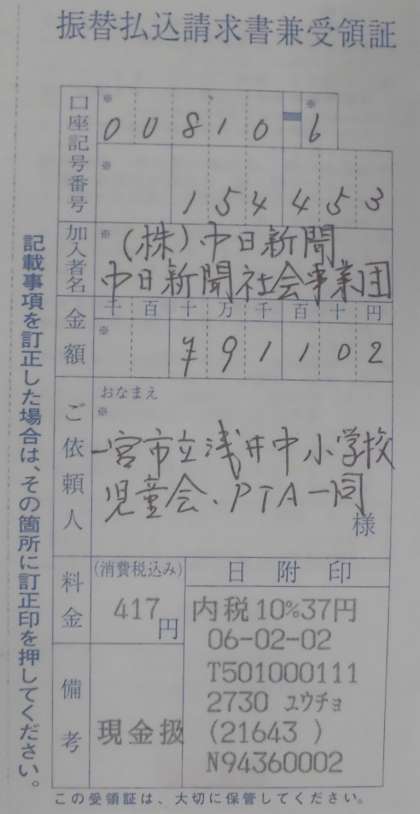 振替払込請求書兼受領証
口座記号番号
※ 00810-※6
※ 154453
加入者名
※ (株)中日新聞
中日新聞社会事業団
金額
千 百 十 万 千 百 十 円
※ ¥91102
ご依頼人
おなまえ
※
一宮市立浅井中小学校
児童会、PTA一同
様
料金
(消費税込み)
417円
備考
現金扱
日附印
内税10%37円
06-02-02
T501000111
2730 ユウチョ
(21643 )
N94360002
記載事項を訂正した場合は、その箇所に訂正印を押してください。
この受領証は、大切に保管してください。